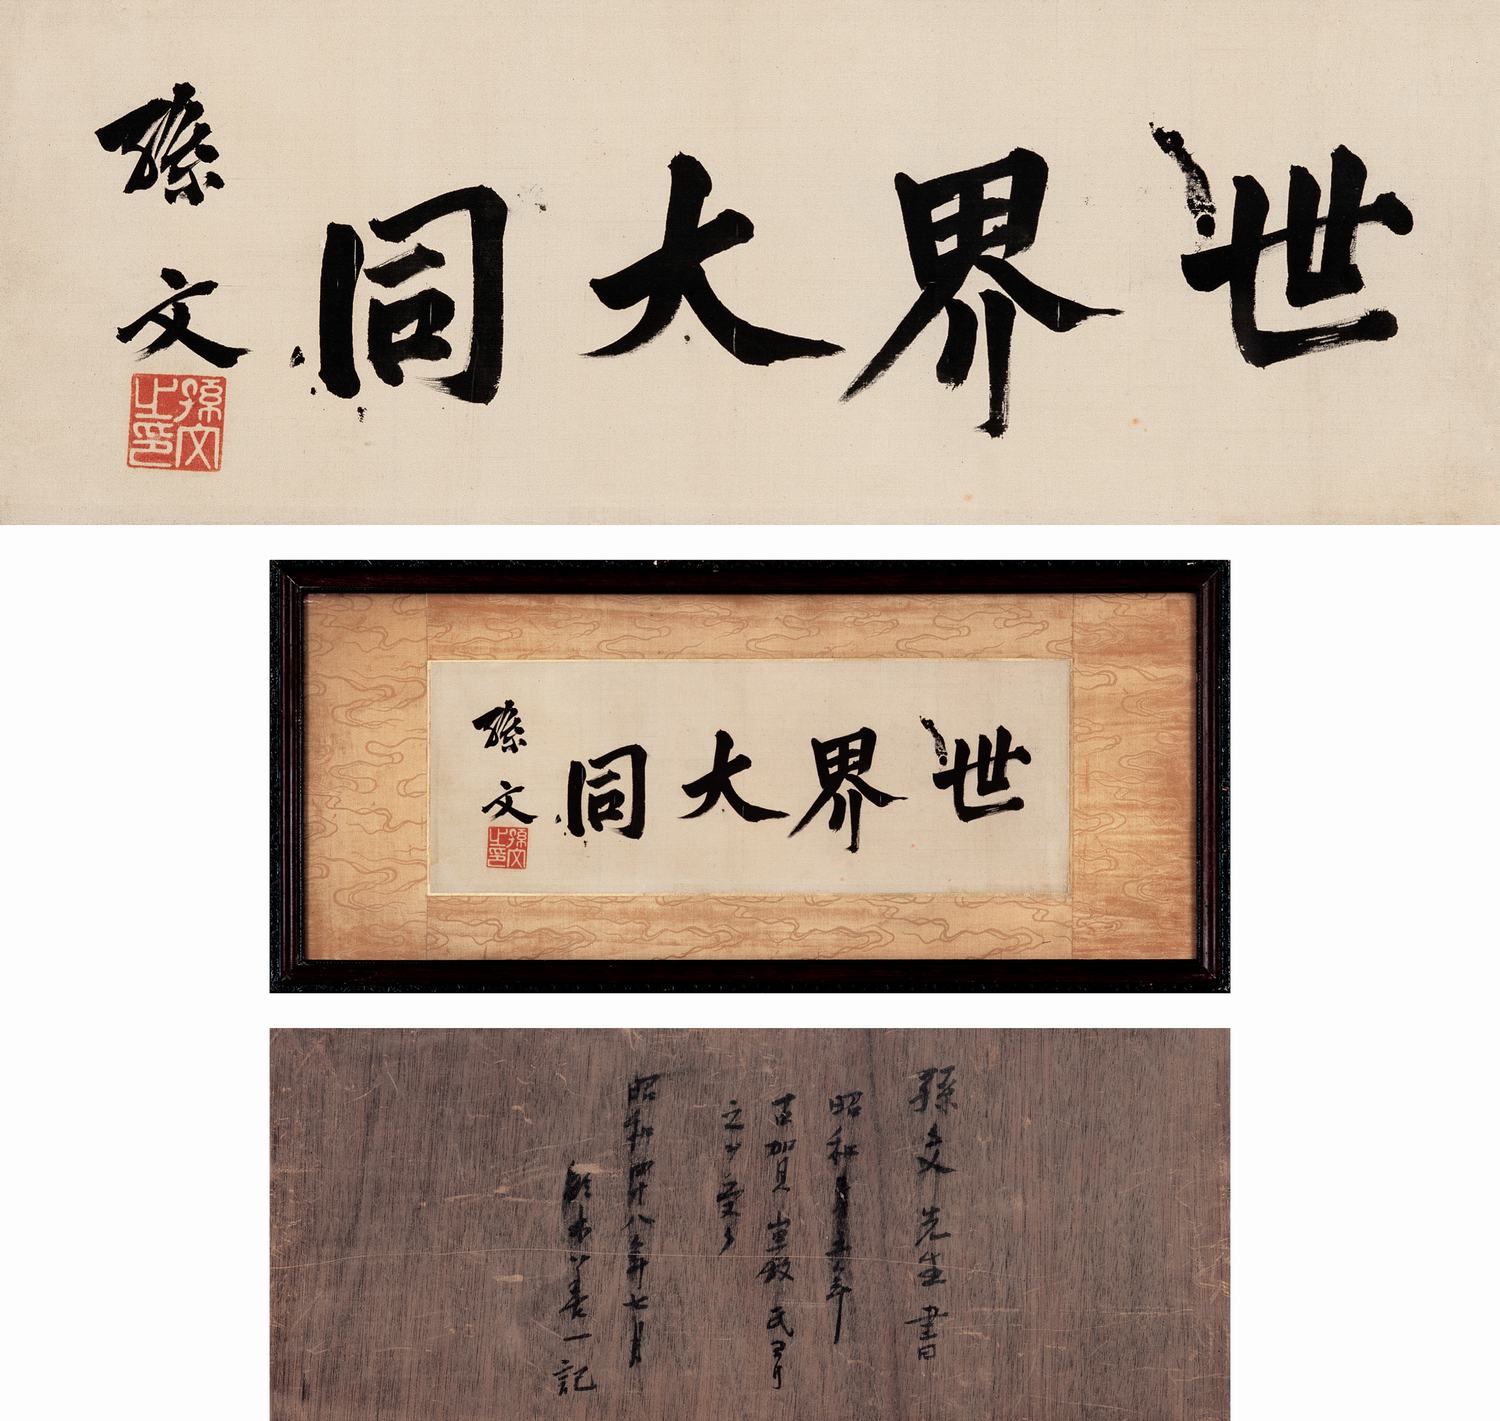 世界大同
孫文
孫文之印
世界大同
孫文
孫文之印
孫文先生書
昭和
古賀 氏ヨリ
之ヲ受く
昭和四十八年七月
鈴木善一記